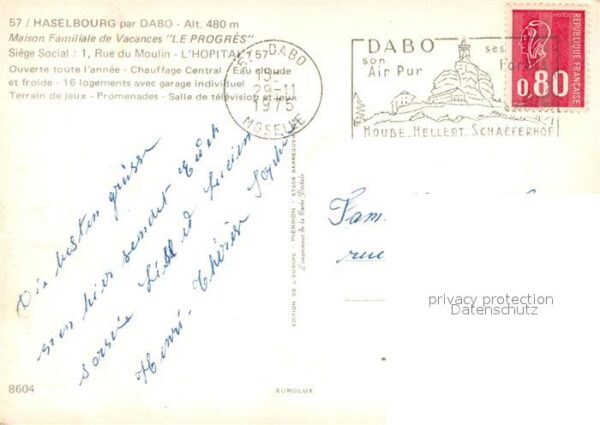 57 / HASELBOURG par DABO - Alt. 480 m
Maison Familiale de Vacances "LE PROGRÈS"
Siège Social : 1, Rue du Moulin - L'HOPITAL / 57
Ouverte toute l'année - Chauffage Central - Eau chaude
et froide - 16 logements avec garage individuel
Terrain de jeux - Promenades - Salle de télévision et jeux
57 DABO
29-11
1975
MOSELLE
DABO
son
Air Pur
ses
HOUBE-HELLERT-SCHAEFERHOF
0,80
REPUBLIQUE FRANÇAISE
Die besten grüsse
von hier sendet Euch
Lucien
Henri - Thérèse Sophie
EDITION DE L'EUROPE - PIERRON - 57206 SARREGUEMINES
L'empereur de la Carte Postale
Fam.
rue
privacy protection
Datenschutz
8604
EUROLUX